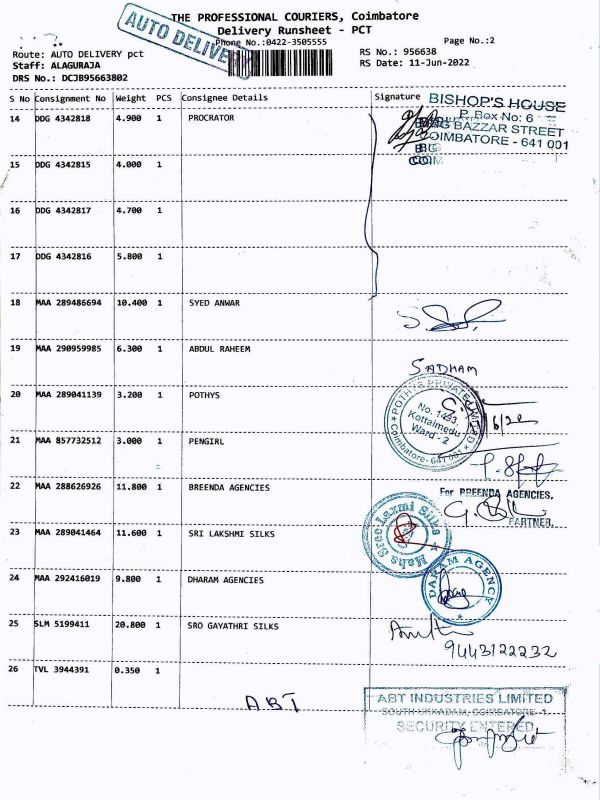 THE PROFESSIONAL COURIERS, Coimbatore
Delivery Runsheet - PCT
AUTO DELIVERY
Phone No.:0422-3505555
Page No.:2
Route: AUTO DELIVERY pct
RS No.: 956638
Staff: ALAGURAJA
RS Date: 11-Jun-2022
DRS No.: DCJB95663802
S No Consignment No Weight PCS Consignee Details Signature
BISHOP'S HOUSE
P. Box No: 6
BIG BAZZAR STREET
COIMBATORE - 641 001
14 DDG 4342818 4.900 1 PROCRATOR
15 DDG 4342815 4.000 1
16 DDG 4342817 4.700 1
17 DDG 4342816 5.800 1
18 MAA 289486694 10.400 1 SYED ANWAR
19 MAA 290959985 6.300 1 ABDUL RAHEEM
SADHAM
20 MAA 289041139 3.200 1 POTHYS
POTHYS PRIVATE LIMITED
No. 1493,
Kottaimedu
Ward - 2
Coimbatore- 641 001
21 MAA 857732512 3.000 1 PENGIRL
22 MAA 288626926 11.800 1 BREENDA AGENCIES
For BREENDA AGENCIES,
PARTNER.
23 MAA 289041464 11.600 1 SRI LAKSHMI SILKS
Maha Sree Laxmi Silks
24 MAA 292416019 9.800 1 DHARAM AGENCIES
DARAM AGENCY
25 SLM 5199411 20.800 1 SRO GAYATHRI SILKS
9443122232
26 TVL 3944391 0.350 1
ABT
ABT INDUSTRIES LIMITED
SOUTH UKKADAM, COIMBATORE-1
SECURITY ENTERED